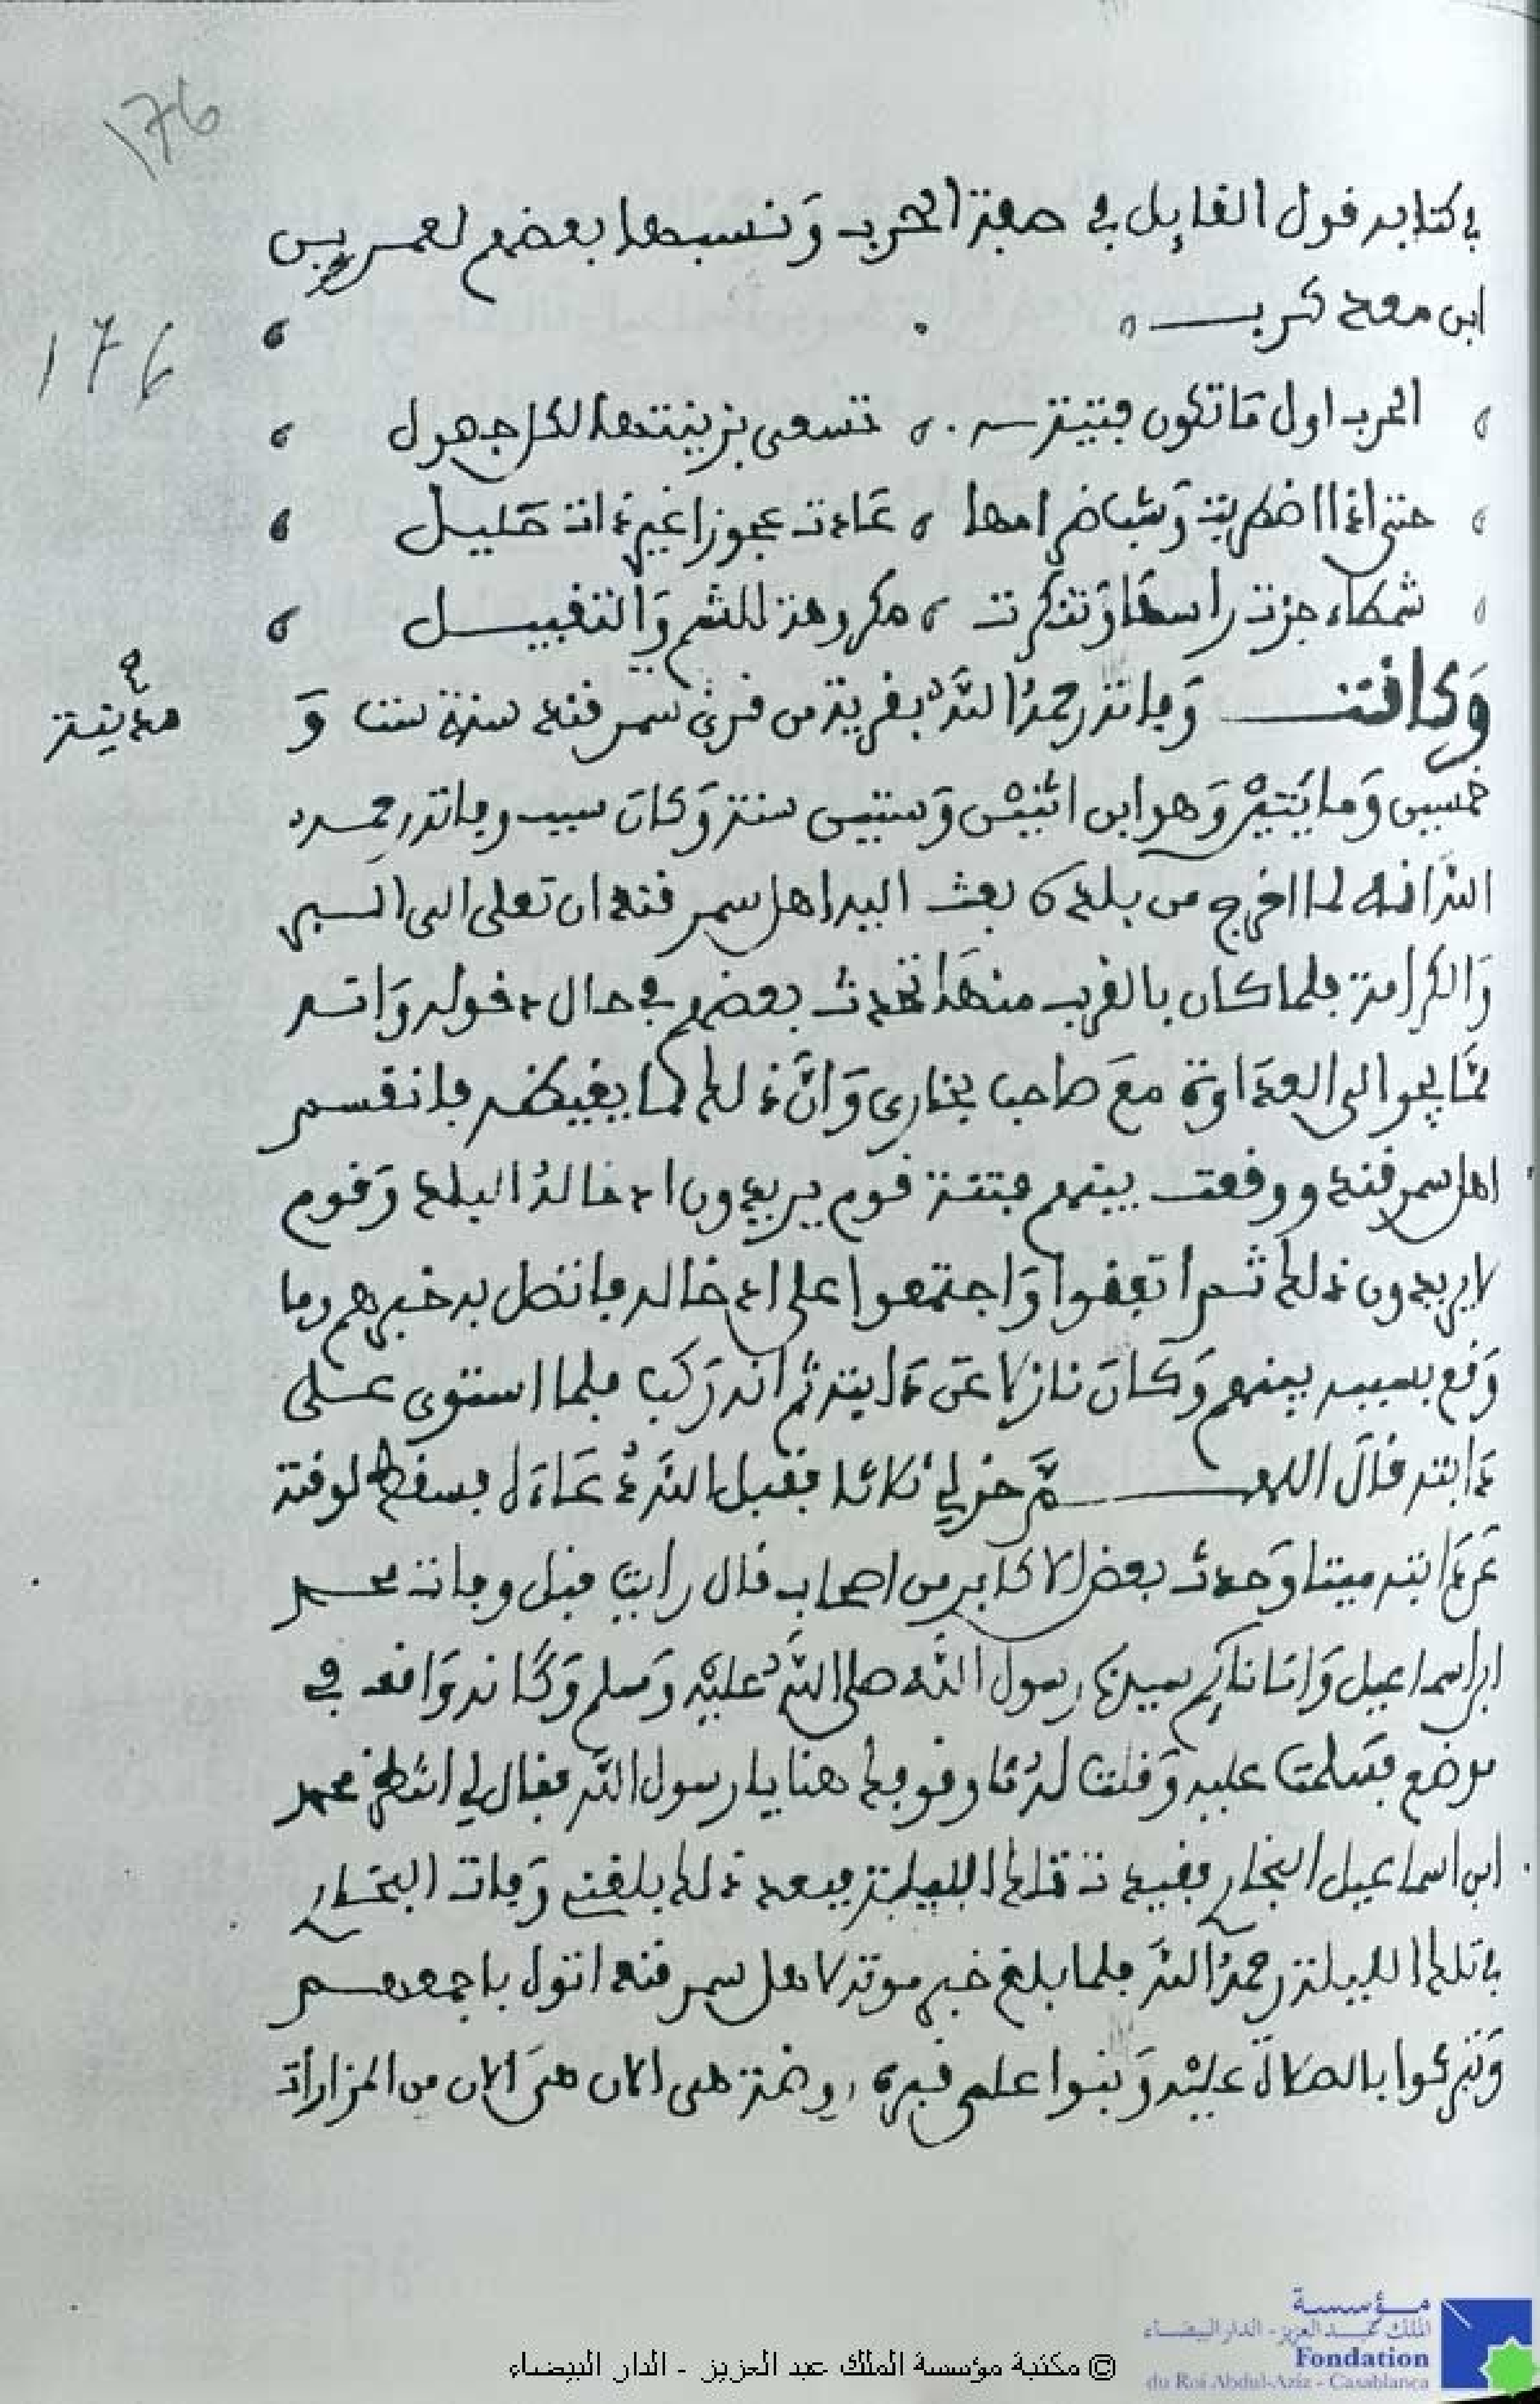 176
في كتابه قول القايل في صفة الحرب ونسبها بعضهم لعمر بن
176
ابن معد كرب
الحرب اول ما تكون فتية تسعى بزينتها لكل جهول
حتى اذا اضطربت وشب ضرامها عادت عجوزا غير ذات حليل
شمطاء جزت راسها وتنكرت مكروهة للشم والتقبيل
وكانت وفاته رحمه الله بقرية من قرى سمرقند سنة ست و
مدينة
خمسين ومايتين وهو ابن اثنين وستين سنة وكان سبب وفاته رحمه
الله انه لما اخرج من بلده بعث اليه اهل سمرقند ان تعلى الى السير
والكرامة فلما كان بالقرب منها تحدث بعضهم في حال دخوله وانه
مما يجوا الى العداوة مع صاحب بخارى وان ذلك مما يغيظه فانقسم
اهل سمرقند ووقعت بينهم فتنة قوم يريدون ادخاله البلد وقوم
لا يريدون ذلك ثم اتفقوا واجتمعوا على ادخاله فاتصل به خبرهم وما
وقع بسببه بينهم وكان نازلا عن دابته ثم انه ركب فلما استوى على
دابته قال اللهم خر لي ثلاثا فقبل الله دعاءه فسقط لوقته
عن دابته ميتا وحدث بعض الاكابر من اصحابه قال رايت قبل وفات محمد
ابن اسماعيل وانا نايم سيدي رسول الله صلى الله عليه وسلم وكانه واقف في
موضع فسلمت عليه وقلت له ما وقوفك هنا يا رسول الله فقال لي انتظر محمد
ابن اسماعيل البخاري فقيدت تلك الليلة فبعد ذلك بلغني وفات البخاري
في تلك الليلة رحمه الله فلما بلغ خبر موته لاهل سمرقند اتوا باجمعهم
وتبركوا بالصلاة عليه وبنوا على قبره روضة هى الان هى الان من المزارات
مؤسسة
الملك عبد العزيز - الدار البيضاء
Fondation
du Roi Abdul-Aziz - Casablanca
© مكتبة مؤسسة الملك عبد العزيز - الدار البيضاء